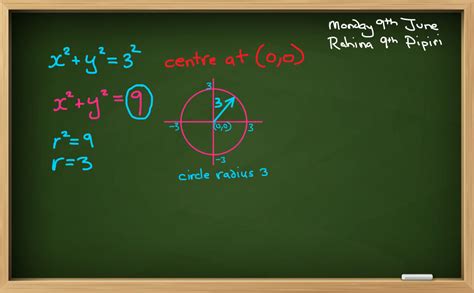 Monday 9th June
Rahina 9th Pipiri
x² + y² = 3²
centre at (0,0)
x² + y² = 9
r² = 9
r = 3
3
3
-3
(0,0)
3
-3
circle radius 3